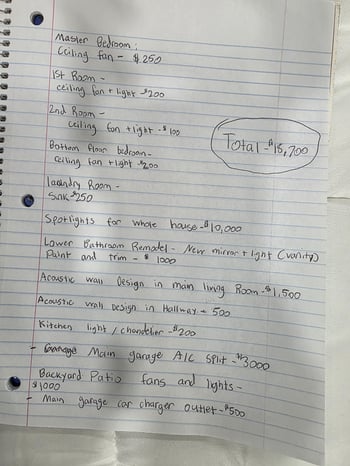 Master Bedroom:
Ceiling fan - $250
1st Room -
ceiling fan + light - $200
2nd Room -
Ceiling fan + light - $100
Total - $18,700
Bottom floor bedroom -
Ceiling fan + light - $200
laundry Room -
Sink - $250
Spotlights for whole house - $10,000
Lower Bathroom Remodel - New mirror + light (vanity)
Paint and trim - $1000
Acoustic wall Design in main living Room - $1,500
Acoustic wall Design in Hallway - 500
Kitchen light / chandelier - $200
- Main garage A/C Split - $3000
Backyard Patio fans and lights -
$1000
- Main garage car charger outlet - $500